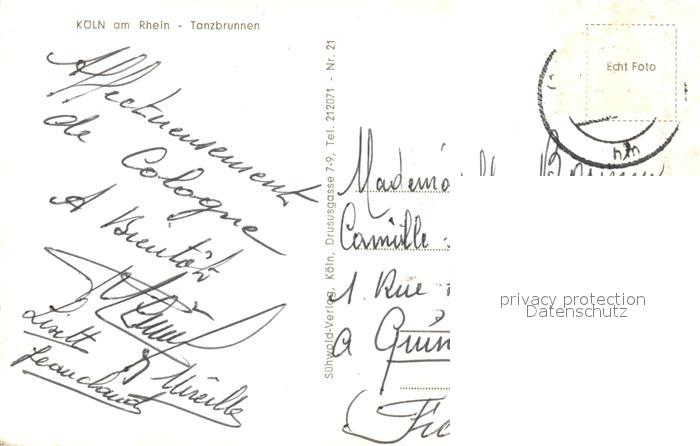 KÖLN am Rhein - Tanzbrunnen
Affectueusement
de Cologne
A Bientôt
Lisett
Mireille
Jeanclaude
Sühwold-Verlag, Köln, Drususgasse 7-9, Tel. 212071 - Nr. 21
Echt Foto
Camille
1 Rue
à
privacy protection
Datenschutz